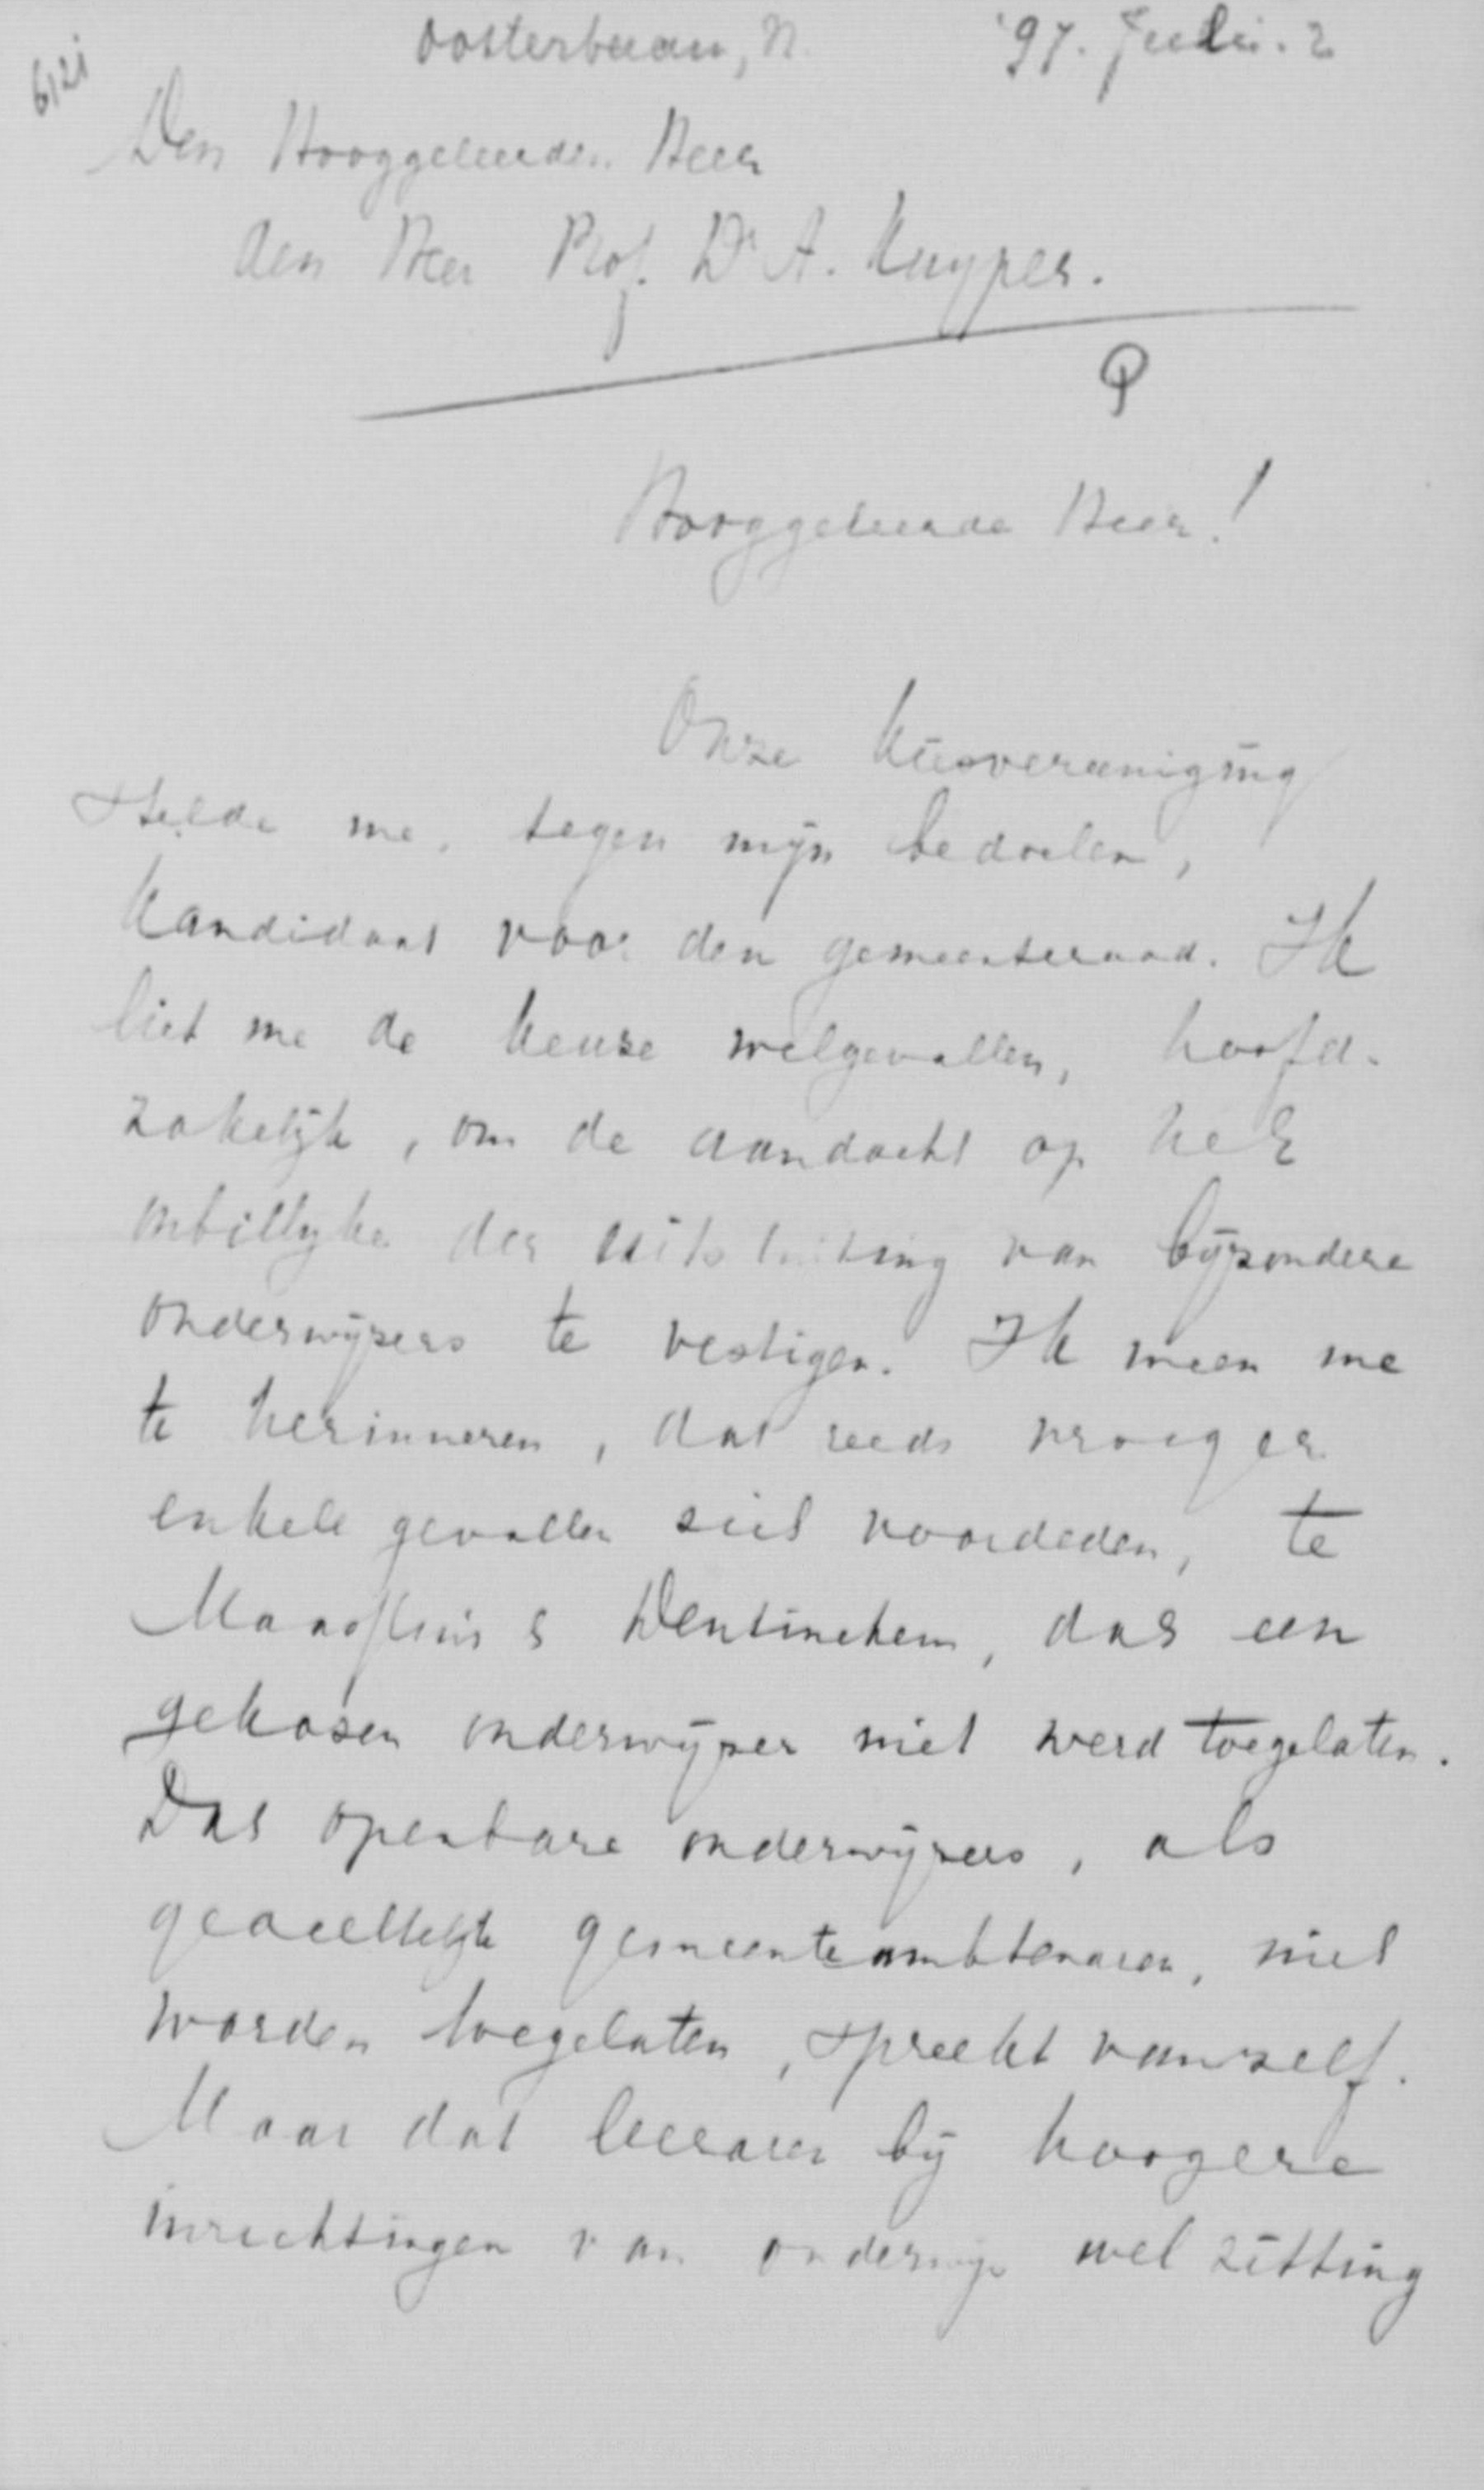 6121
'97. Juli. 2
Den Hooggeleerden Heer
den Heer Prof. Dr A. Kuyper.
Hooggeleerde Heer!
Onze kiesvereeniging
stelde me, tegen mijn bedoelen,
kandidaat voor den gemeenteraad. Ik
liet me de keuze welgevallen, hoofd-
zakelijk, om de aandacht op het
onbillijke der uitsluiting van bijzondere
onderwijzers te vestigen. Ik meen me
te herinneren, dat reeds vroeger
enkele gevallen zich voordeden, te
Maassluis & Deutinchem, dat een
gekozen onderwijzer niet werd toegelaten.
Dat openbare onderwijzers, als
gemeenteambtenaren, niet
worden toegelaten, spreekt vanzelf.
Maar dat leeraren bij hoogere
inrichtingen van onderwijs wel zitting